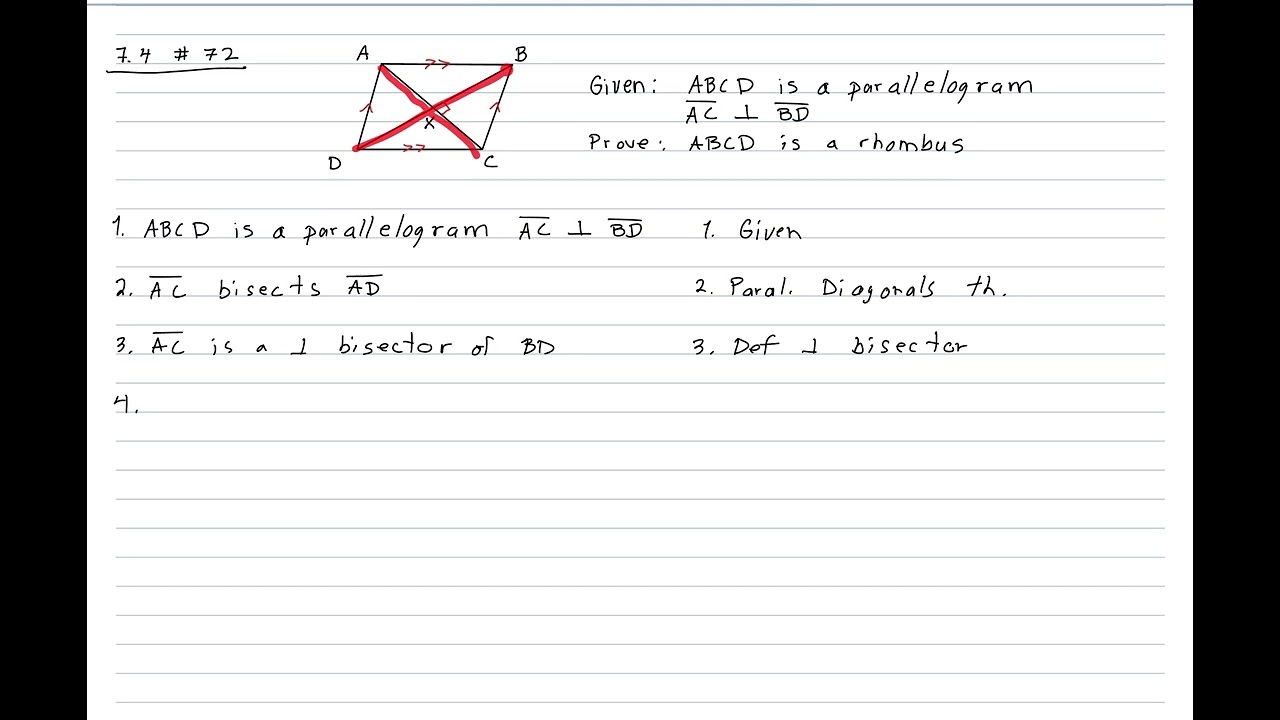 7.4 # 72
A B
X
D C
Given: ABCD is a parallelogram
A̅C̅ ⊥ B̅D̅
Prove: ABCD is a rhombus
1. ABCD is a parallelogram A̅C̅ ⊥ B̅D̅ 1. Given
2. A̅C̅ bisects A̅D̅ 2. Paral. Diagonals th.
3. A̅C̅ is a ⊥ bisector of BD 3. Def ⊥ bisector
4.